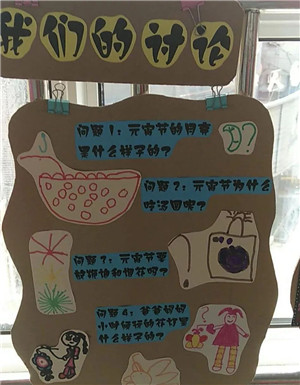 我们的讨论
问题1：元宵节的月亮
是什么样子的？
问题2：元宵节为什么
吃汤圆呢？
问题3：元宵节要
放鞭炮和烟花吗？
问题4：爸爸妈妈
小时候玩的花灯是
什么样子的？